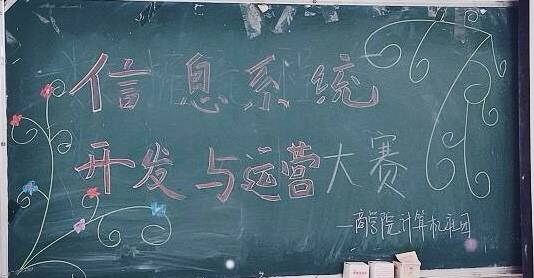 信息系统
开发与运营大赛
—商学院计算机班团